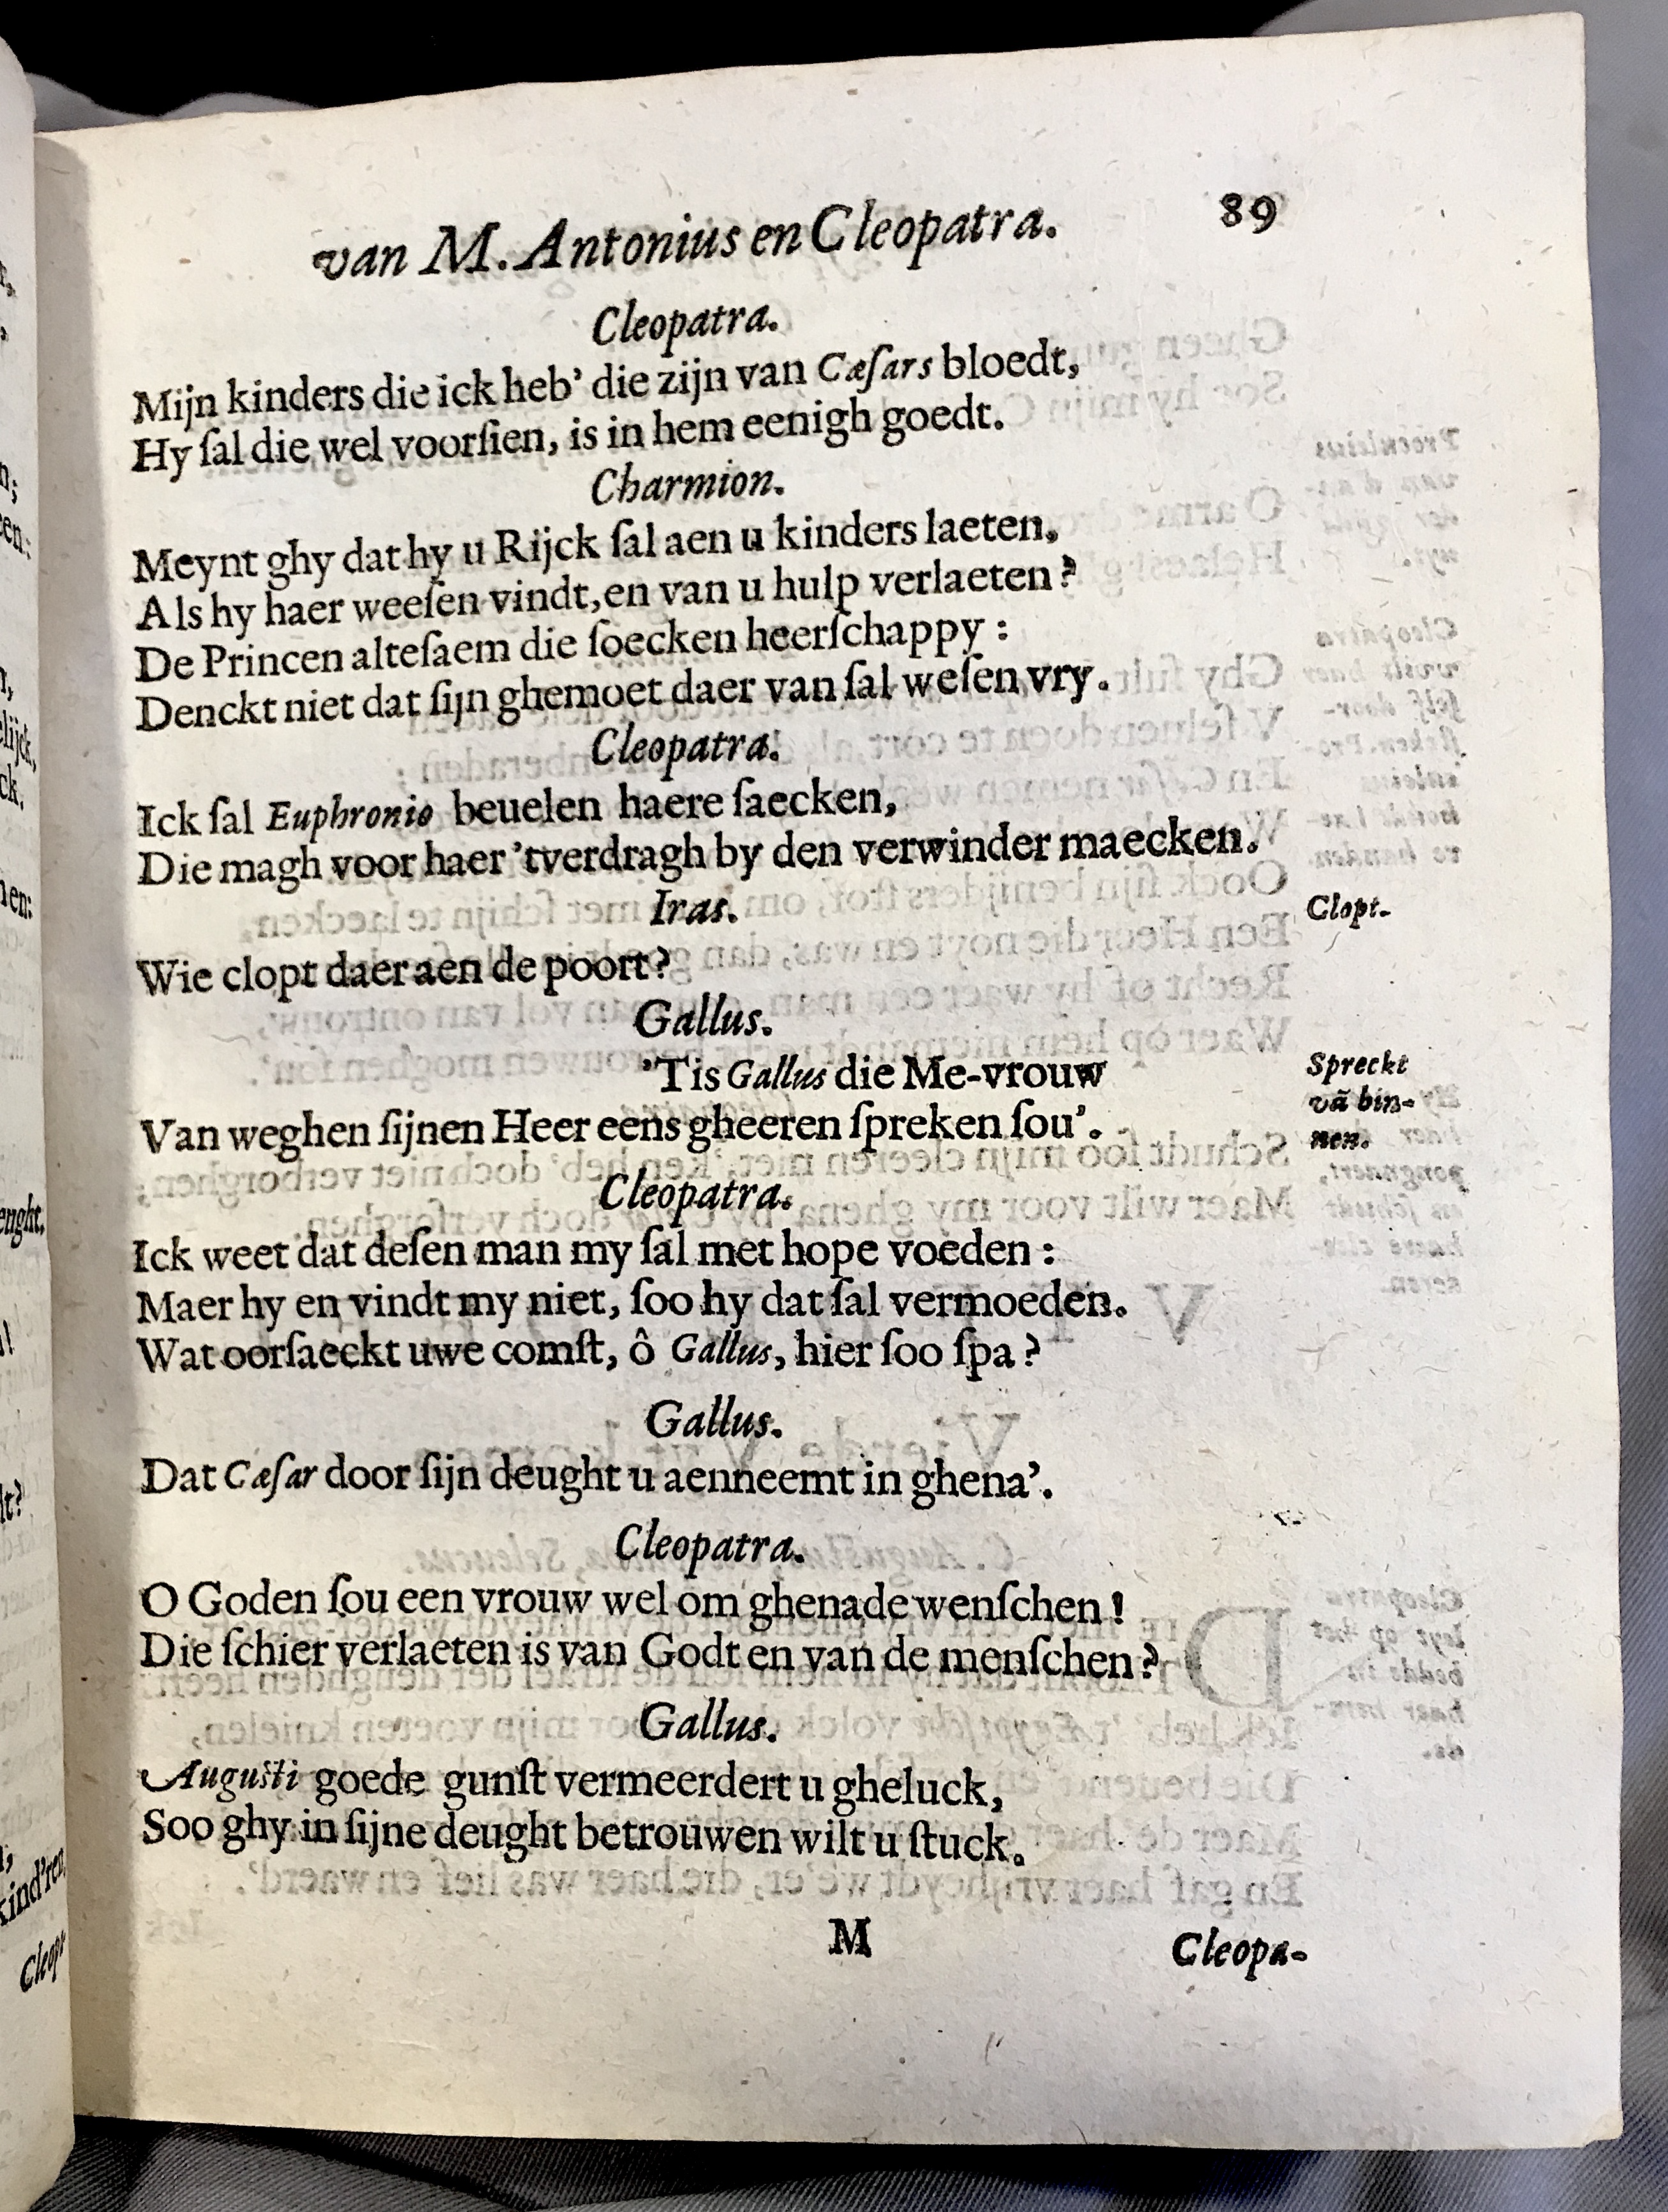 van M. Antonius en Cleopatra. 89
Cleopatra.
Mijn kinders die ick heb’ die zijn van Cæſars bloedt,
Hy ſal die wel voorſien, is in hem eenigh goedt.
Charmion.
Meynt ghy dat hy u Rijck ſal aen u kinders laeten,
Als hy haer weeſen vindt, en van u hulp verlaeten?
De Princen alteſaem die ſoecken heerſchappy:
Denckt niet dat ſijn ghemoet daer van ſal weſen vry.
Cleopatra.
Ick ſal Euphronio beuelen haere ſaecken,
Die magh voor haer ’tverdragh by den verwinder maecken.
Iras.
Clopt.
Wie clopt daer aen de poort?
Gallus.
’Tis Gallus die Me-vrouw
Spreckt
vã bin-
nen.
Van weghen ſijnen Heer eens gheeren ſpreken ſou’.
Cleopatra.
Ick weet dat deſen man my ſal met hope voeden:
Maer hy en vindt my niet, ſoo hy dat ſal vermoeden.
Wat oorſaeckt uwe comſt, ô Gallus, hier ſoo ſpa?
Gallus.
Dat Cæſar door ſijn deught u aenneemt in ghena’.
Cleopatra.
O Goden ſou een vrouw wel om ghenade wenſchen!
Die ſchier verlaeten is van Godt en van de menſchen?
Gallus.
Auguſti goede gunſt vermeerdert u gheluck,
Soo ghy in ſijne deught betrouwen wilt u ſtuck.
M Cleopa-